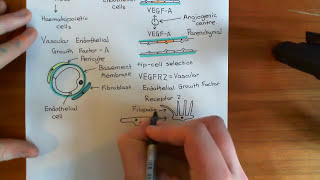 Haematopoietic
cells
cells
VEGF-A
Angiogenic
centre
VEGF-A
Parenchymal
Vascular Endothelial
Growth Factor-A
Pericyte
Basement
Membrane
Fibroblast
Endothelial
cell
tip-cell selection
VEGFR2 = Vascular
Endothelial Growth Factor
Receptor 2